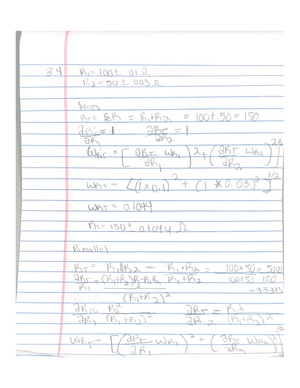 3.4 R₁ = 100 ± 01 Ω
R₂ = 50 ± 003 Ω
Series
R_T = ΣR = R₁ + R₂ = 100 + 50 = 150
∂R_T/∂R₁ = 1 ∂R_T/∂R₂ = 1
W_RT = [(∂R_T/∂R₁ W_R₁)² + (∂R_T/∂R₂ W_R₂)²]
W_RT = [(1 × 0.1)² + (1 × 0.03)²]^1/2
W_RT = 0.1044
R = 150 ± 0.1044 Ω
Parallel
R_T = R₁R₂ = R₁ · R₂ / R₁ + R₂ = 100 × 50 / 100 + 50 = 5000 / 150
= 33.333
∂R_T/R₁ = (R₁ + R₂)R₂ - R₁R₂ / (R₁ + R₂)²
∂R_T/∂R₁ = R₂² / (R₁ + R₂)² ∂R_T/∂R₂ = / (R₁ + R₂)²
W_RT = [(∂R_T/∂R₁ W_R₁)² + (∂R_T/∂R₂ W_R₂)²]^1/2